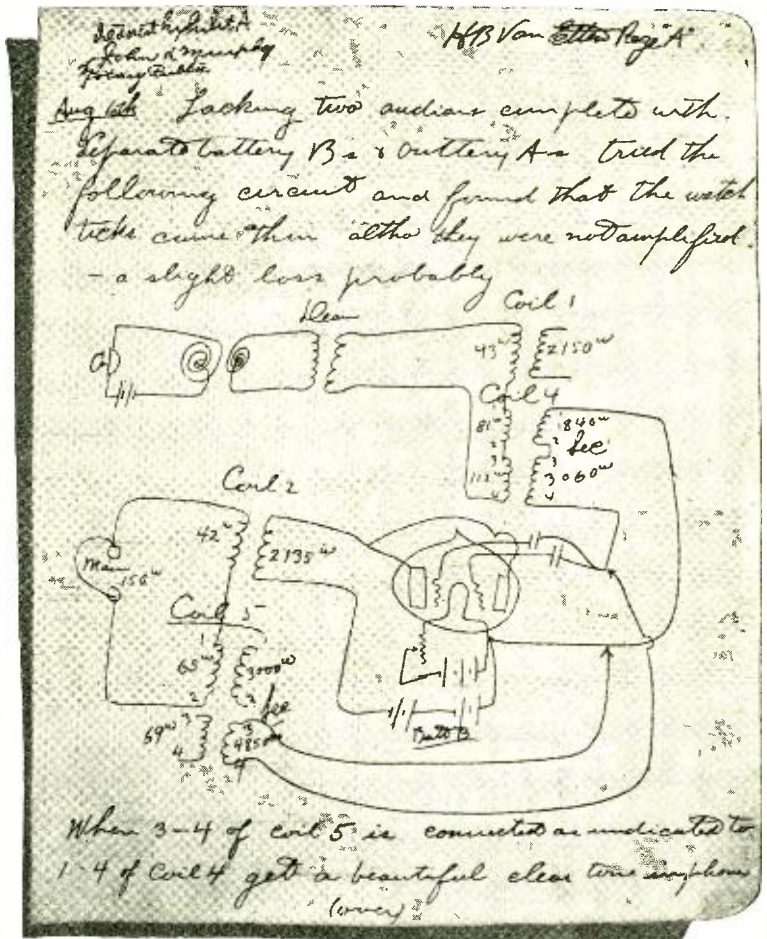 John A Murphy
Notary Public
HB Van Etten Page "A"
Aug 6th Lacking two audions complete with
separate battery Bs & battery As tried the
following circuit and found that the watch
ticks came thru altho they were not amplified.
- a slight loss probably
Coil 1
43ω 2150ω
Coil 4
81ω 1 840ω
2 2 Sec
3 3
3060ω
4 4
Coil 2
42ω 2135ω
150ω
Coil 5
1
65ω 3000ω
2 2
Sec
69ω 3 3
4 4850ω
4
Batt B
When 3-4 of coil 5 is connected as indicated to
1-4 of Coil 4 get a beautiful clear tone in phone
(over)